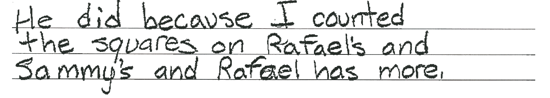 He did because I counted
the squares on Rafael's and
Sammy's and Rafael has more.